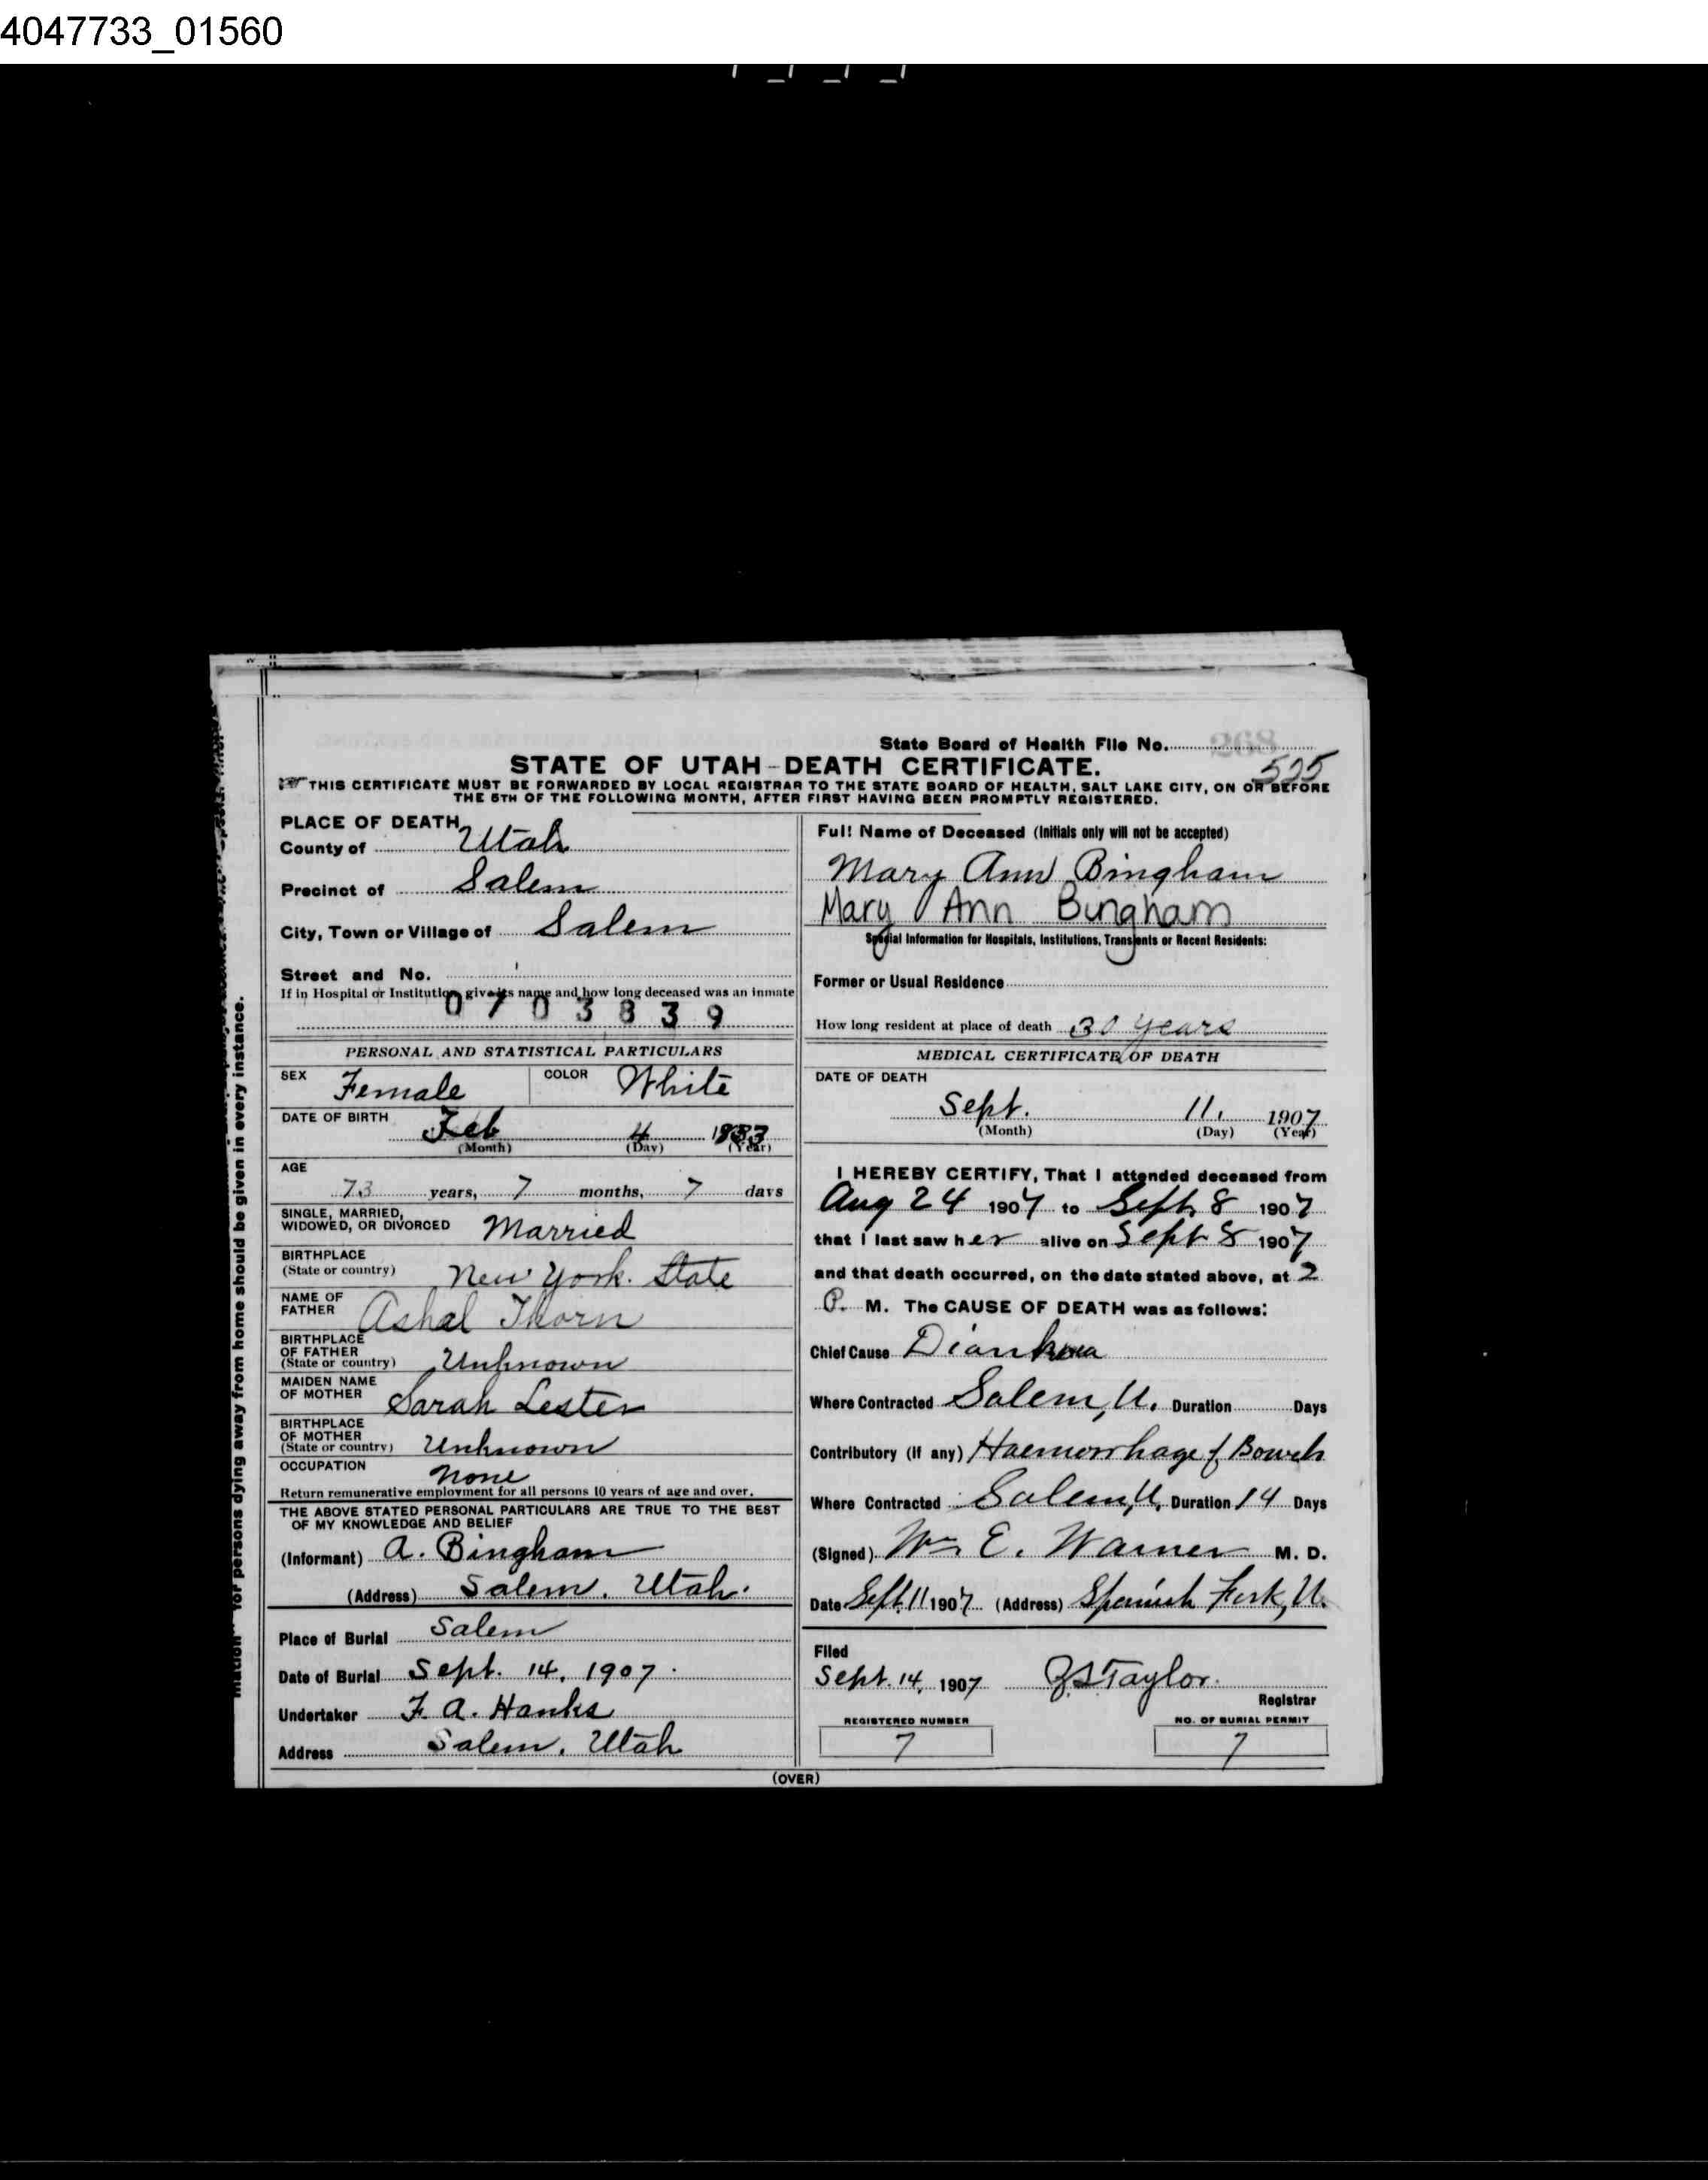 4047733_01560
State Board of Health File No. 268
525
STATE OF UTAH-DEATH CERTIFICATE.
THIS CERTIFICATE MUST BE FORWARDED BY LOCAL REGISTRAR TO THE STATE BOARD OF HEALTH, SALT LAKE CITY, ON OR BEFORE
THE 5TH OF THE FOLLOWING MONTH, AFTER FIRST HAVING BEEN PROMPTLY REGISTERED.
PLACE OF DEATH
County of Utah
Precinct of Salem
City, Town or Village of Salem
Street and No.
If in Hospital or Institution give its name and how long deceased was an inmate
0703839
PERSONAL AND STATISTICAL PARTICULARS
SEX Female COLOR White
DATE OF BIRTH Feb 4 1833
(Month) (Day) (Year)
AGE
73 years, 7 months, 7 days
SINGLE, MARRIED,
WIDOWED, OR DIVORCED Married
BIRTHPLACE
(State or country) New York. State
NAME OF
FATHER Ashal Thorn
BIRTHPLACE
OF FATHER
(State or country) Unknown
MAIDEN NAME
OF MOTHER Sarah Lester
BIRTHPLACE
OF MOTHER
(State or country) Unknown
OCCUPATION None
Return remunerative employment for all persons 10 years of age and over.
THE ABOVE STATED PERSONAL PARTICULARS ARE TRUE TO THE BEST
OF MY KNOWLEDGE AND BELIEF
(Informant) A. Bingham
(Address) Salem. Utah.
Place of Burial Salem
Date of Burial Sept. 14, 1907.
Undertaker F. A. Hanks
Address Salem. Utah
Full Name of Deceased (Initials only will not be accepted)
Mary Ann Bingham
Mary Ann Bingham
Special Information for Hospitals, Institutions, Transients or Recent Residents:
Former or Usual Residence
How long resident at place of death 30 years
MEDICAL CERTIFICATE OF DEATH
DATE OF DEATH
Sept. 11, 1907
(Month) (Day) (Year)
I HEREBY CERTIFY, That I attended deceased from
Aug 24 1907 to Sept. 8 1907
that I last saw her alive on Sept 8 1907
and that death occurred, on the date stated above, at 2
P. M. The CAUSE OF DEATH was as follows:
Chief Cause Diarrhoea
Where Contracted Salem, U. Duration Days
Contributory (if any) Haemorrhage of Bowels
Where Contracted Salem, U. Duration 14 Days
(Signed) Wm E. Warner M. D.
Date Sept. 11 1907 (Address) Spanish Fork, U.
Filed
Sept. 14, 1907 Taylor.
Registrar
REGISTERED NUMBER NO. OF BURIAL PERMIT
7 7
(OVER)
for persons dying away from home should be given in every instance.